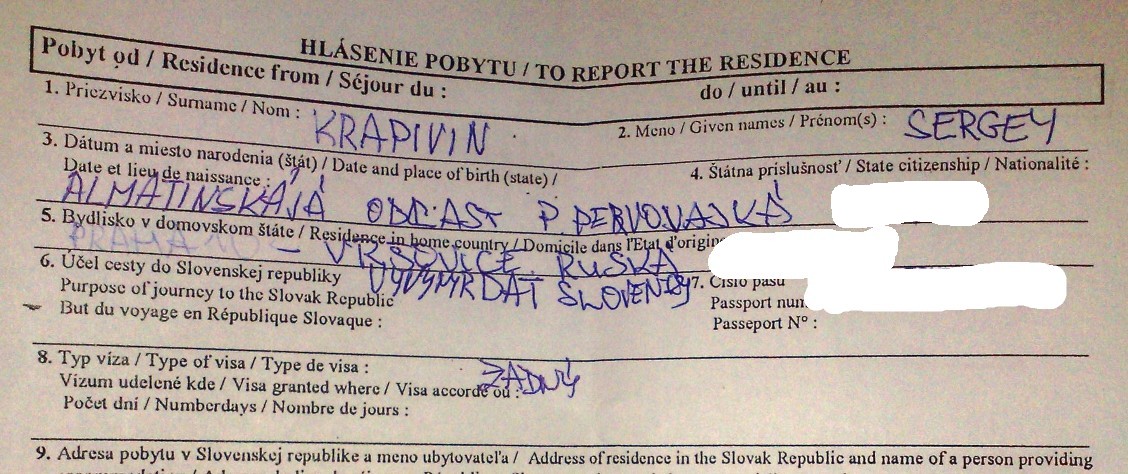 HLÁSENIE POBYTU / TO REPORT THE RESIDENCE
Pobyt od / Residence from / Séjour du : do / until / au :
1. Priezvisko / Surname / Nom : KRAPIVIN 2. Meno / Given names / Prénom(s) : SERGEY
3. Dátum a miesto narodenia (štát) / Date and place of birth (state) / 4. Štátna príslušnosť / State citizenship / Nationalité :
Date et lieu de naissance :
ALMATINSKÁJÁ OBLAST P. PERVOMAJSKÁ
5. Bydlisko v domovskom štáte / Residence in home country / Domicile dans l'Etat d'origin
PRAHA - VRŠOVICE RUSKÁ
6. Účel cesty do Slovenskej republiky 7. Číslo pasu
Purpose of journey to the Slovak Republic Passport num
But du voyage en République Slovaque : Passeport N° :
8. Typ víza / Type of visa / Type de visa : ŽÁDNÝ
Vízum udelené kde / Visa granted where / Visa accordé où :
Počet dní / Numberdays / Nombre de jours :
9. Adresa pobytu v Slovenskej republike a meno ubytovateľa / Address of residence in the Slovak Republic and name of a person providing